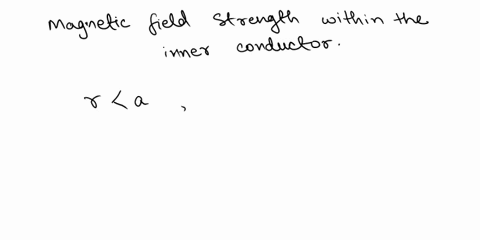 Magnetic field strength within the
inner conductor.
r < a ,